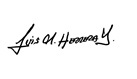 Luis A. Herrera Y.